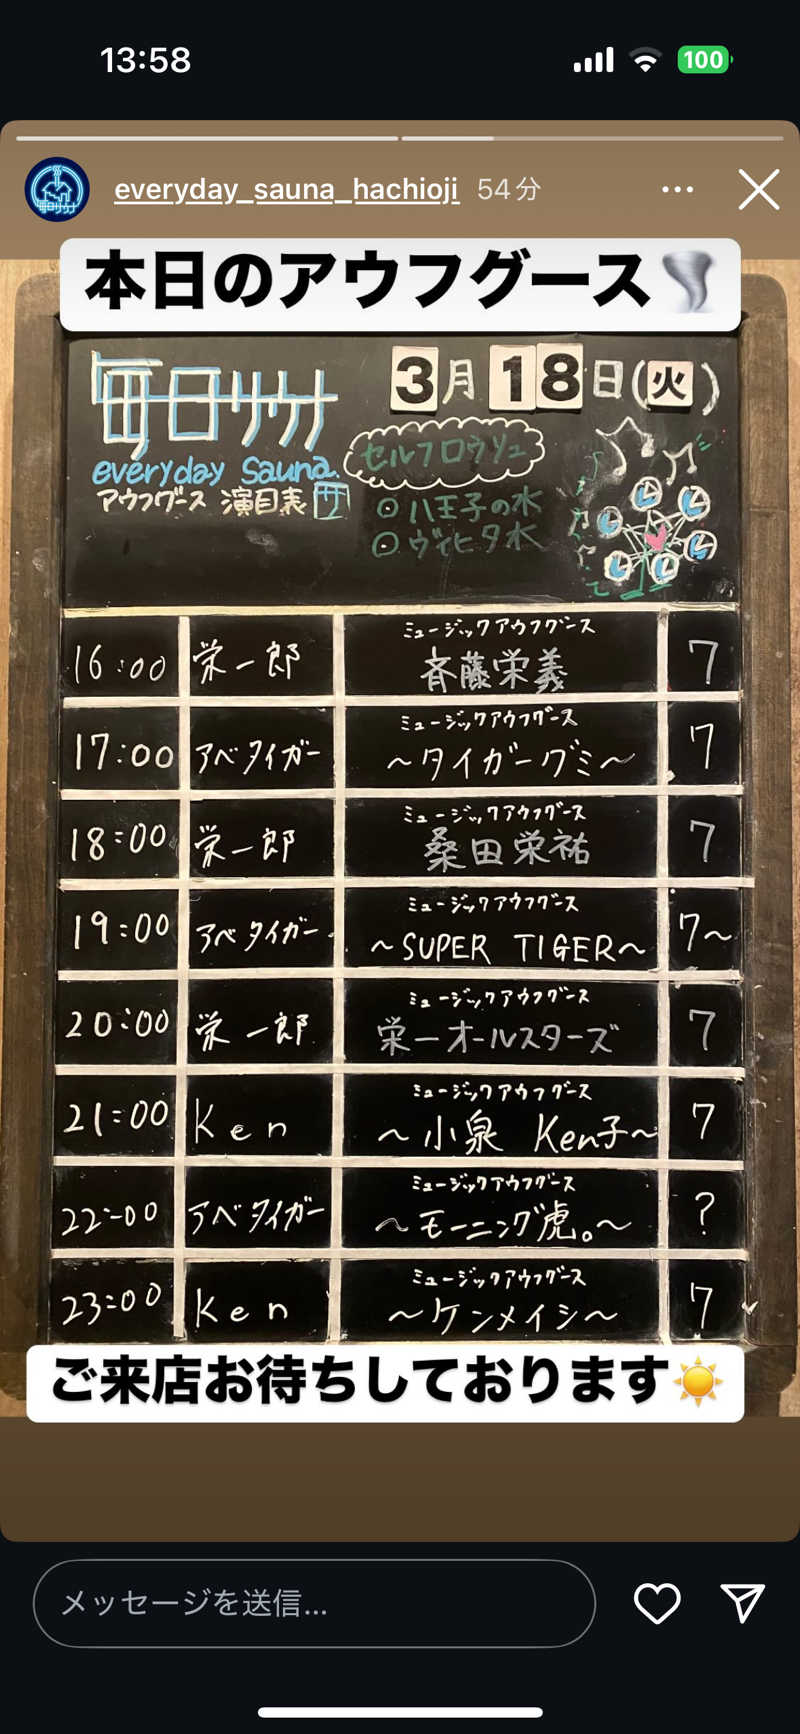 13:58
100
everyday_sauna_hachioji 54分
本日のアウフグース🌪️
毎日サウナ
3月18日(火)
everyday Sauna.
アウフグース 演目表 サ
セルフロウリュ
八王子の水
ヴィヒタ水
16:00 栄一郎 ミュージックアウフグース 斉藤栄義 7
17:00 アベタイガー ミュージックアウフグース ～タイガーグミ～ 7
18:00 栄一郎 ミュージックアウフグース 桑田栄祐 7
19:00 アベタイガー ミュージックアウフグース ～SUPER TIGER～ 7～
20:00 栄一郎 ミュージックアウフグース 栄一オールスターズ 7
21:00 Ken ミュージックアウフグース ～小泉 Ken子～ 7
22:00 アベタイガー ミュージックアウフグース ～モーニング虎。～ ?
23:00 Ken ミュージックアウフグース ～ケンメイシ～ 7
ご来店お待ちしております☀️
メッセージを送信...